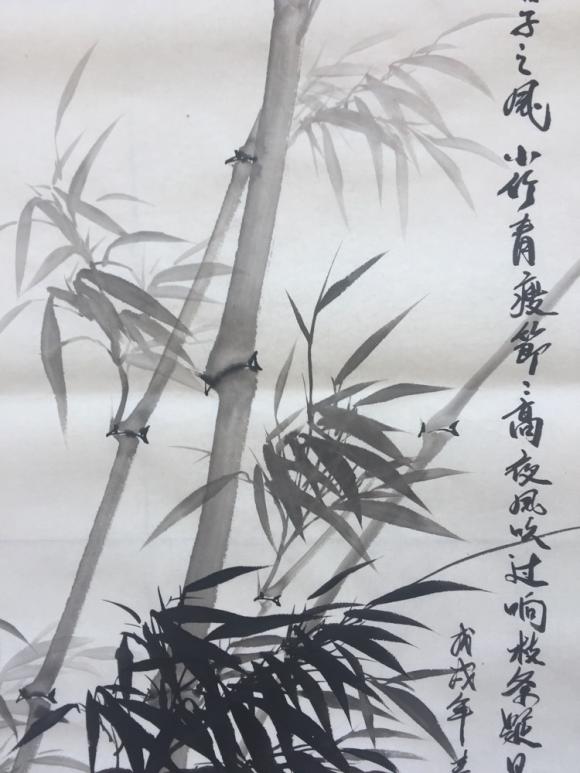 子之风 小竹青瘦節〻高夜风吹过响枝条题
戊戌年